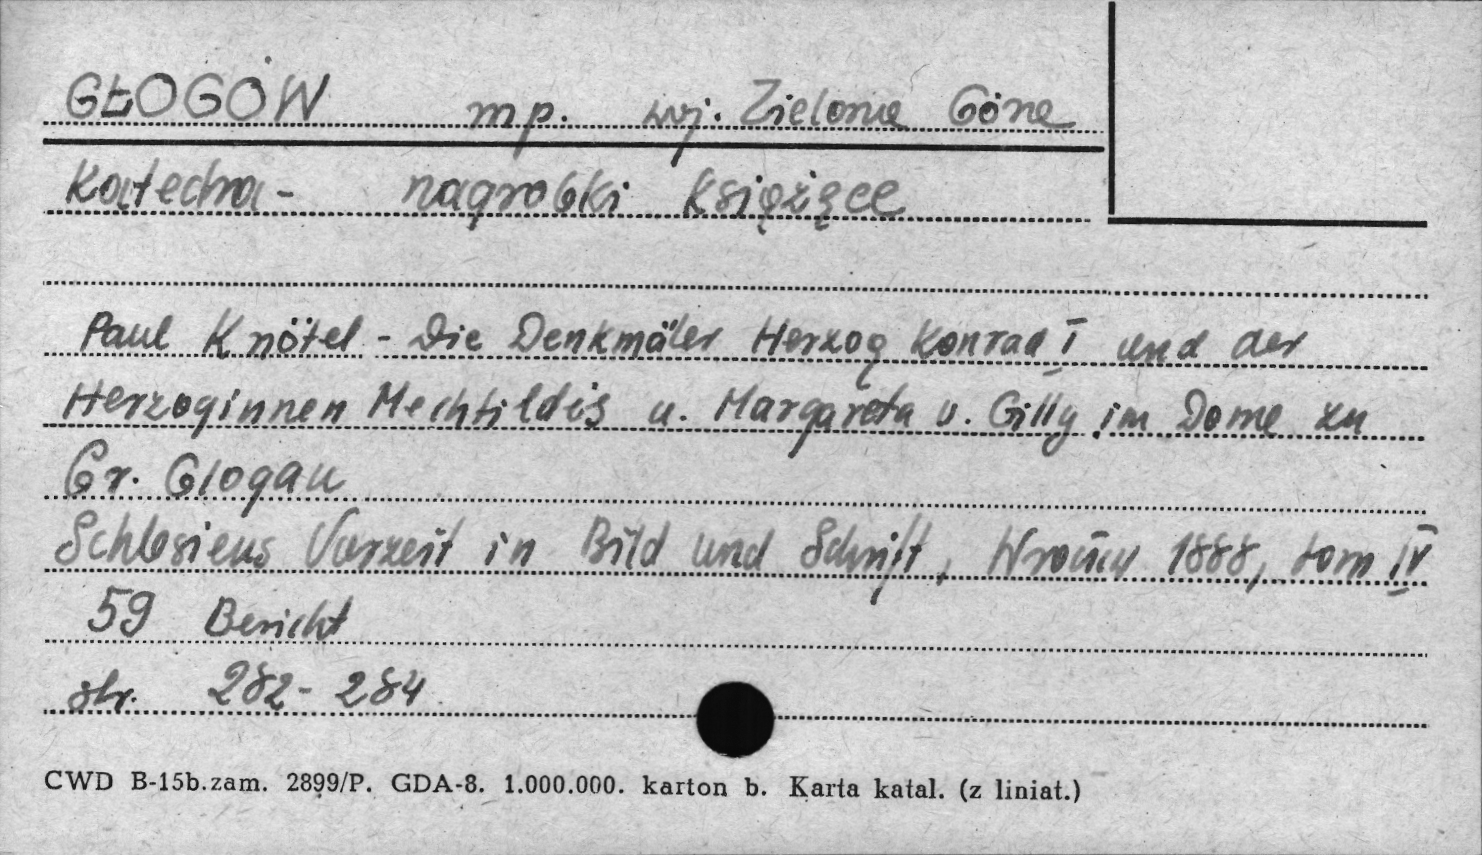 GŁOGÓW mp. woj. Zielona Góra
Katedra - nagrobki książęce
Paul Knötel - Die Denkmäler Herzog Konrad I und der
Herzoginnen Mechtildis u. Margareta v. Gilly im Dome zu
Gr. Glogau
Schlesiens Vorzeit in Bild und Schrift, Wrocław 1888, tom IV
59 Bericht
str. 282-284
CWD B-15b.zam. 2899/P. GDA-8. 1.000.000. karton b. Karta katal. (z liniat.)